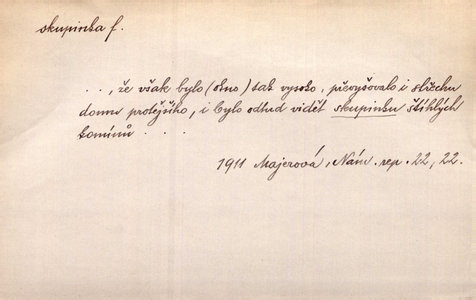 skupinka f.
. . , že však bylo (okno) tak vysoko, převyšovalo i střechu
domu protějšího, i bylo odtud vidět skupinku štíhlých
komínů . . .
1911 Majerová, Nám. rep. 22, 22.